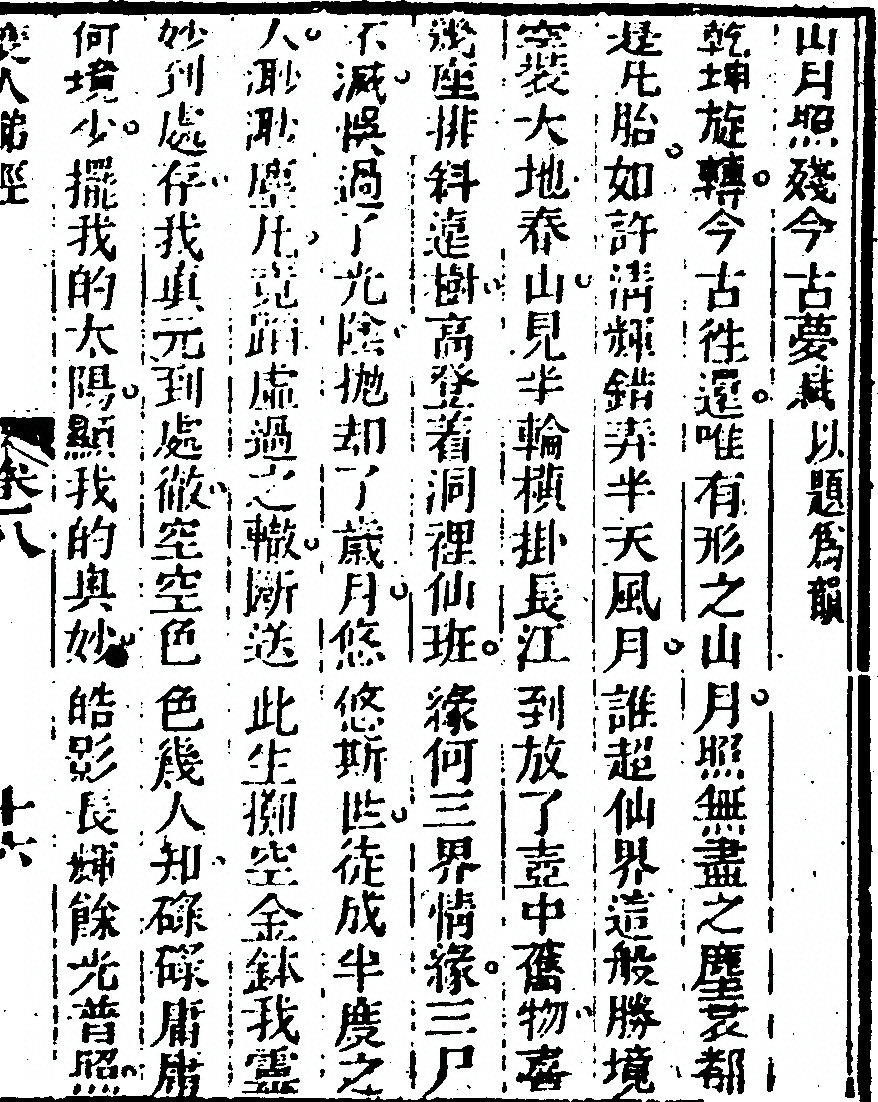 山月照殘今古夢賦以題為韻
乾坤旋轉今古徃還唯有形之山月照無盡之塵衷都
是凡胎如許清輝錯弄半天風月誰超仙界這般勝境
空裝大地春山見半輪橫掛長江到放了壺中舊物喜
幾座排科遠樹高登着洞裡仙班緣何三界情緣三尸
不滅悞過了光陰拋却了歲月悠悠斯世徒成半度之
人渺渺塵凡竟蹈虛過之轍斷送此生擲空金鉢我靈
妙到處存我真元到處徹空空色色幾人知碌碌庸庸
何境少擺我的太陽顯我的奥妙皓影長輝餘光普照
卷八
十六